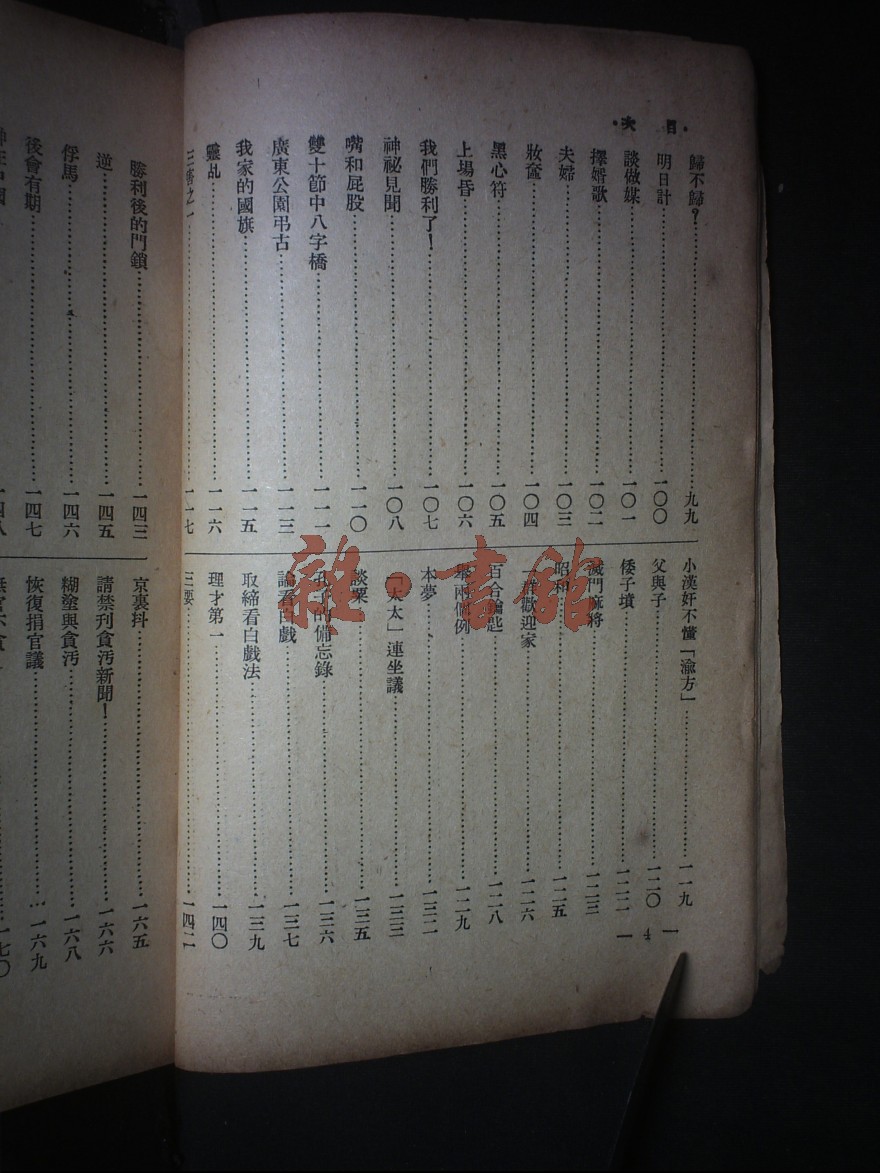 ·目次·
歸不歸？……九九
明日計……一〇〇
談做媒……一〇一
擇婿歌……一〇二
夫婦……一〇三
妝奩……一〇四
黑心符……一〇五
上場昏……一〇六
我們勝利了！……一〇七
神祕見聞……一〇八
嘴和屁股……一一〇
雙十節中八字橋……一一一
廣東公園弔古……一一三
我家的國旗……一一五
雞乩……一一六
三審之一……一一七
小漢奸不懂「渝方」……一一九
父與子……一二〇
倭子墳……一二二
滅門麻將……一二三
昭和……一二五
一群歡迎家……一二六
百合鑰匙……一二八
舉兩個例……一二九
本夢……一三二
「太太」連坐議……一三三
談粟……一三五
孔子的備忘錄……一三六
論看白戲……一三七
取締看白戲法……一三九
理才第一……一四〇
三要……一四二
一4一
勝利後的門鎖……一四三
逆……一四五
俘馬……一四六
後會有期……一四七
一四八
京裏抖……一六五
請禁刊貪汚新聞！……一六六
糊塗與貪汚……一六八
恢復捐官議……一六九
一七〇
雜·書館